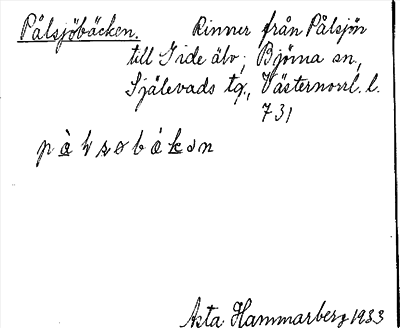 Pålsjöbäcken. Rinner från Pålsjön
till Gide älv; Björna sn,
Själevads tg., Västernorrl. l.
731
Asta Hammarberg 1933